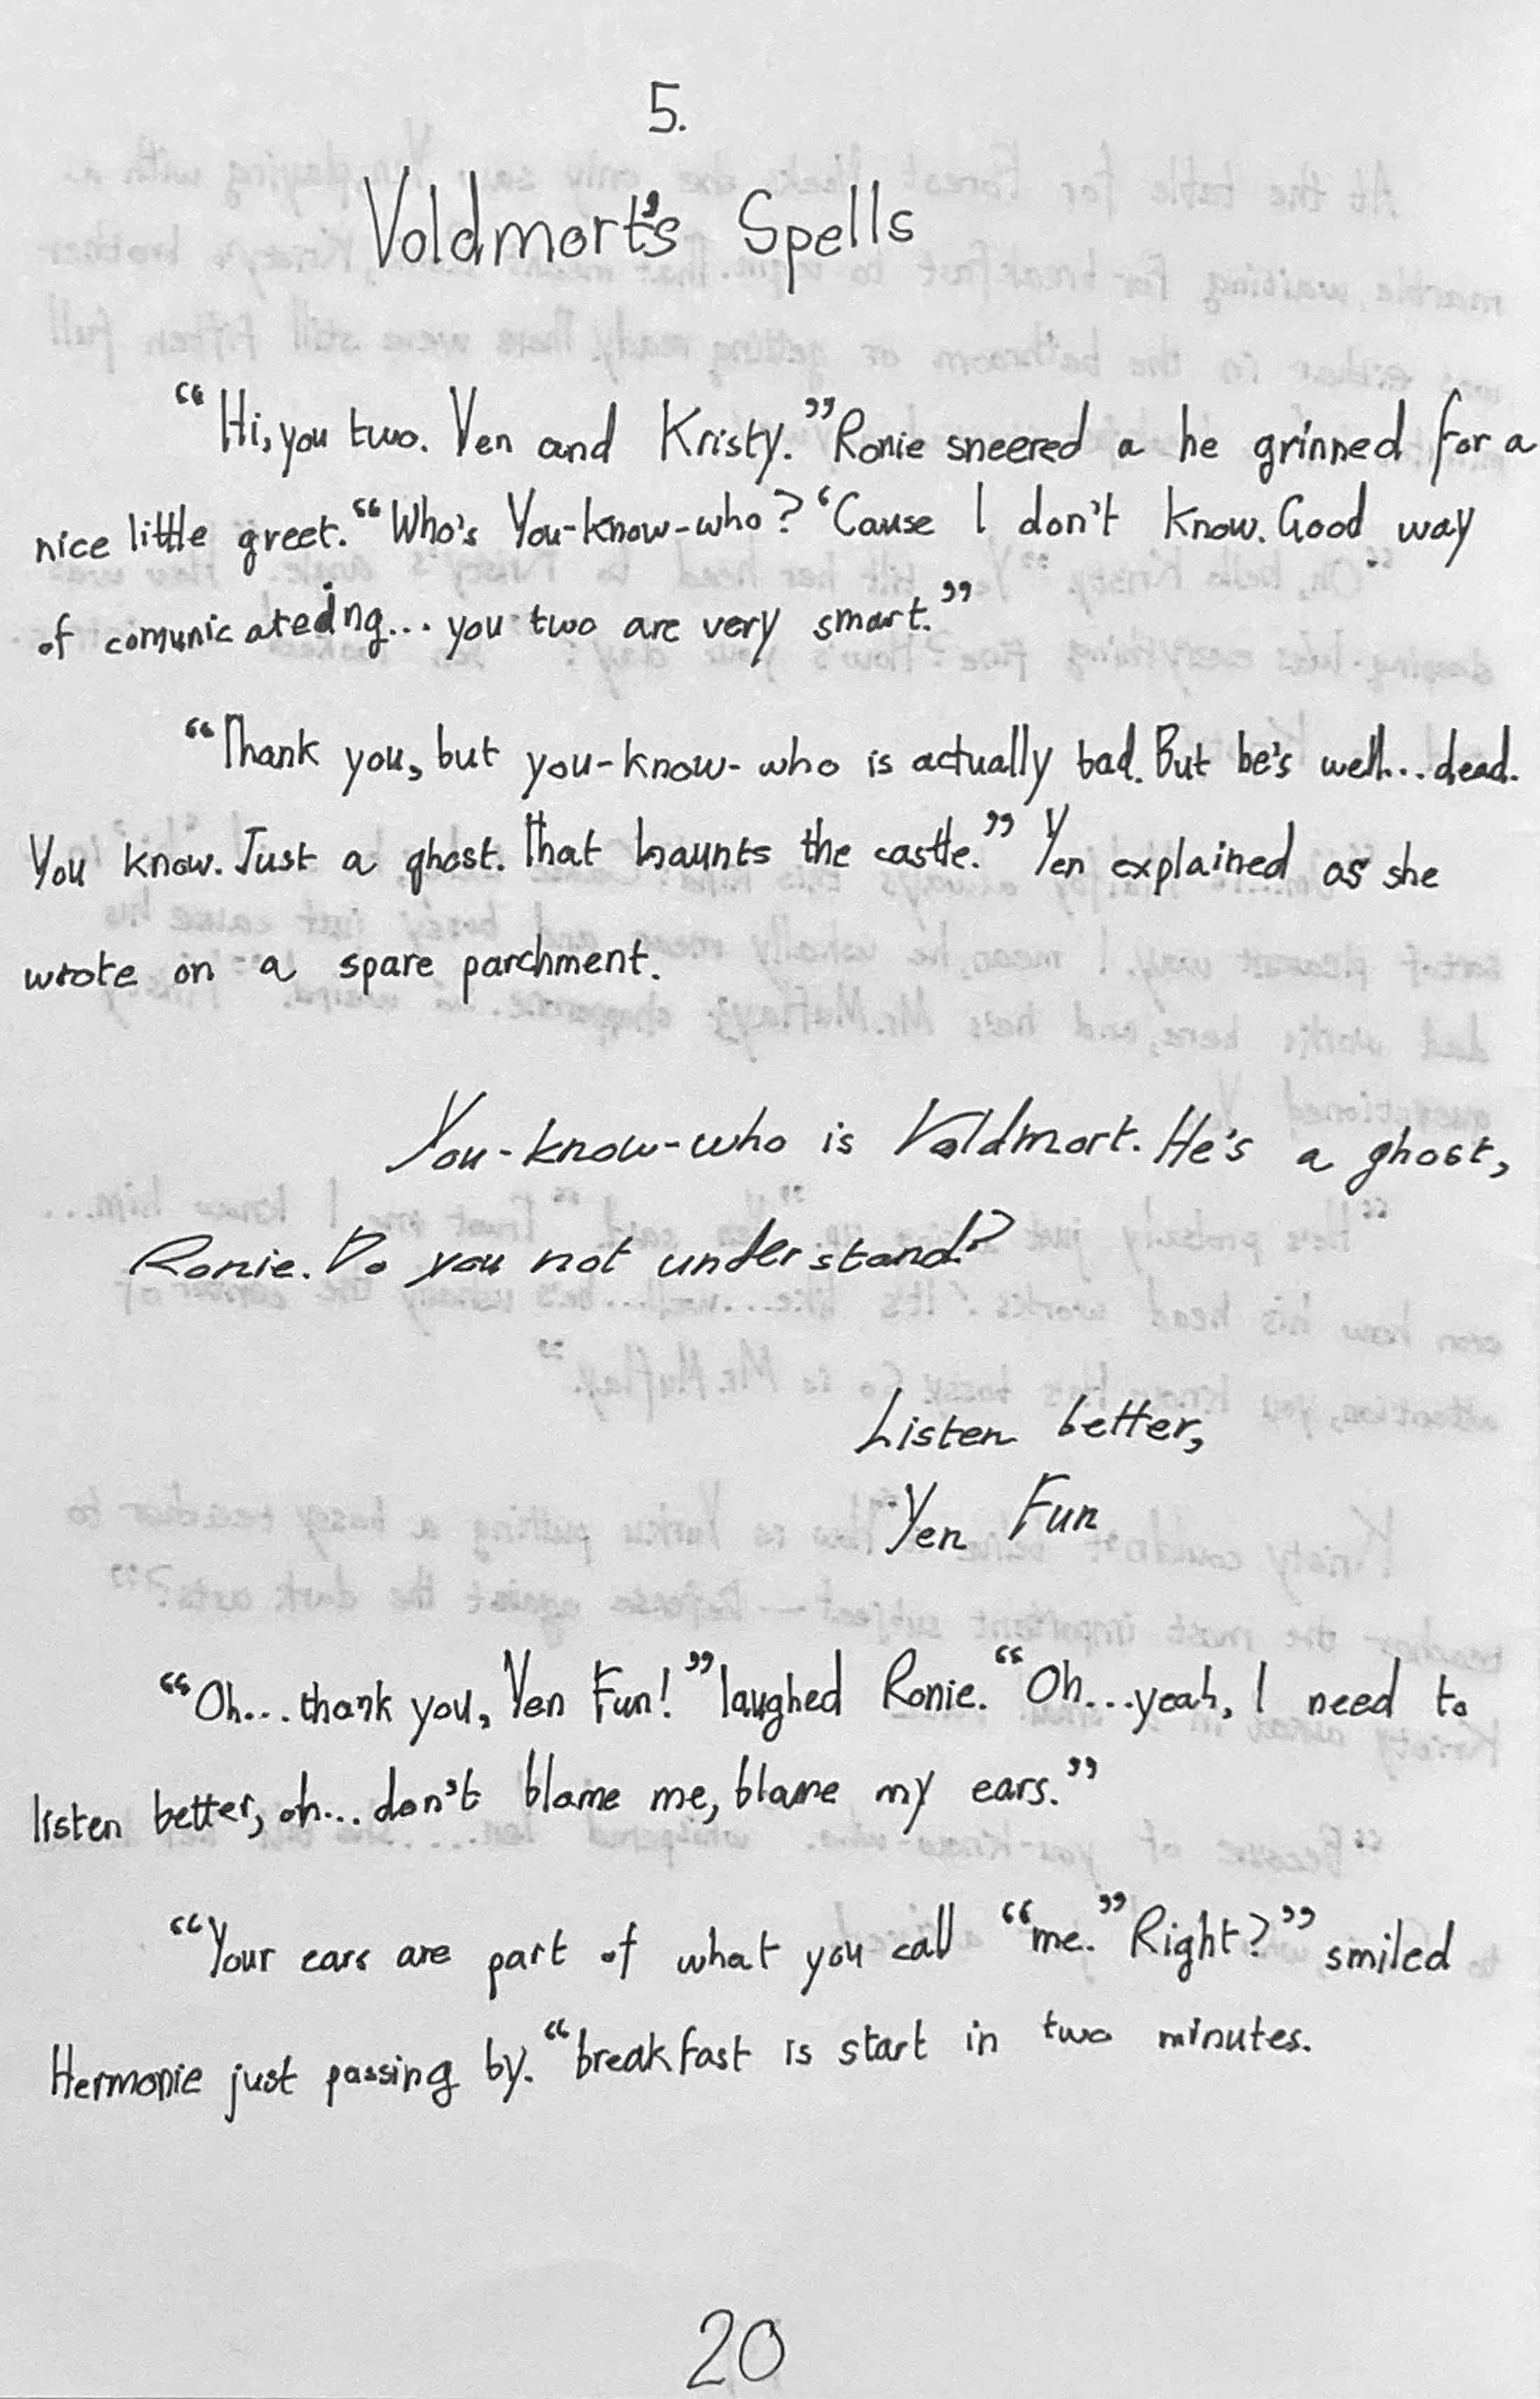 5.
Voldmort's Spells
“Hi, you two. Yen and Kristy.” Ronie sneered a he grinned for a
nice little greet. “Who's You-know-who? ‘Cause I don't know. Good way
of comunicateding... you two are very smart.”
“Thank you, but you-know-who is actually bad. But he's well... dead.
You know. Just a ghost. That haunts the castle.” Yen explained as she
wrote on a spare parchment.
You-know-who is Voldmort. He's a ghost,
Ronie. Do you not understand?
Listen better,
Yen Fun
“Oh... thank you, Yen Fun!” laughed Ronie. “Oh... yeah, I need to
listen better, oh... don't blame me, blame my ears.”
“Your ears are part of what you call “me.” Right?” smiled
Hermonie just passing by. “breakfast is start in two minutes.
20